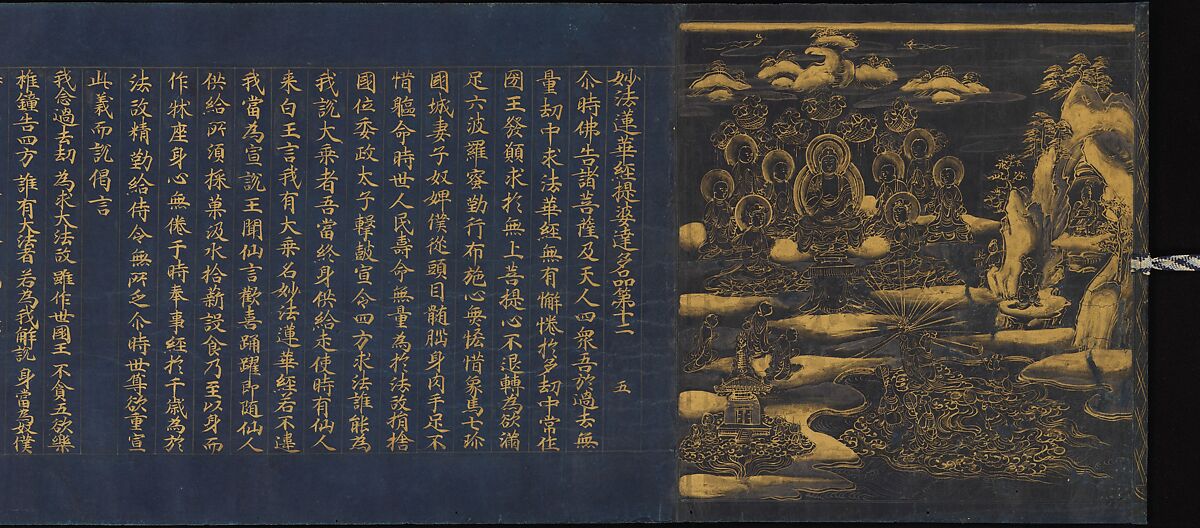 妙法蓮華經提婆達多品第十二 五
尒時佛告諸菩薩及天人四衆吾於過去無
量劫中求法華經無有懈惓於多劫中常作
國王發願求於無上菩提心不退轉為欲滿
足六波羅蜜勤行布施心無悋惜象馬七珎
國城妻子奴婢僕從頭目髓腦身肉手足不
惜軀命時世人民壽命無量為於法故捐捨
國位委政太子擊皷宣令四方求法誰能為
我說大乗者吾當終身供給走使時有仙人
来白王言我有大乗名妙法蓮華經若不違
我當為宣說王聞仙言歡喜踊躍即隨仙人
供給所須採菓汲水拾薪設食乃至以身而
作牀座身心無倦于時奉事經於千歲為於
法故精勤給侍令無所乏尒時世尊欲重宣
此義而說偈言
我念過去劫 為求大法故 雖作世國王 不貪五欲樂
椎鐘告四方 誰有大法者 若為我解說 身當為奴僕